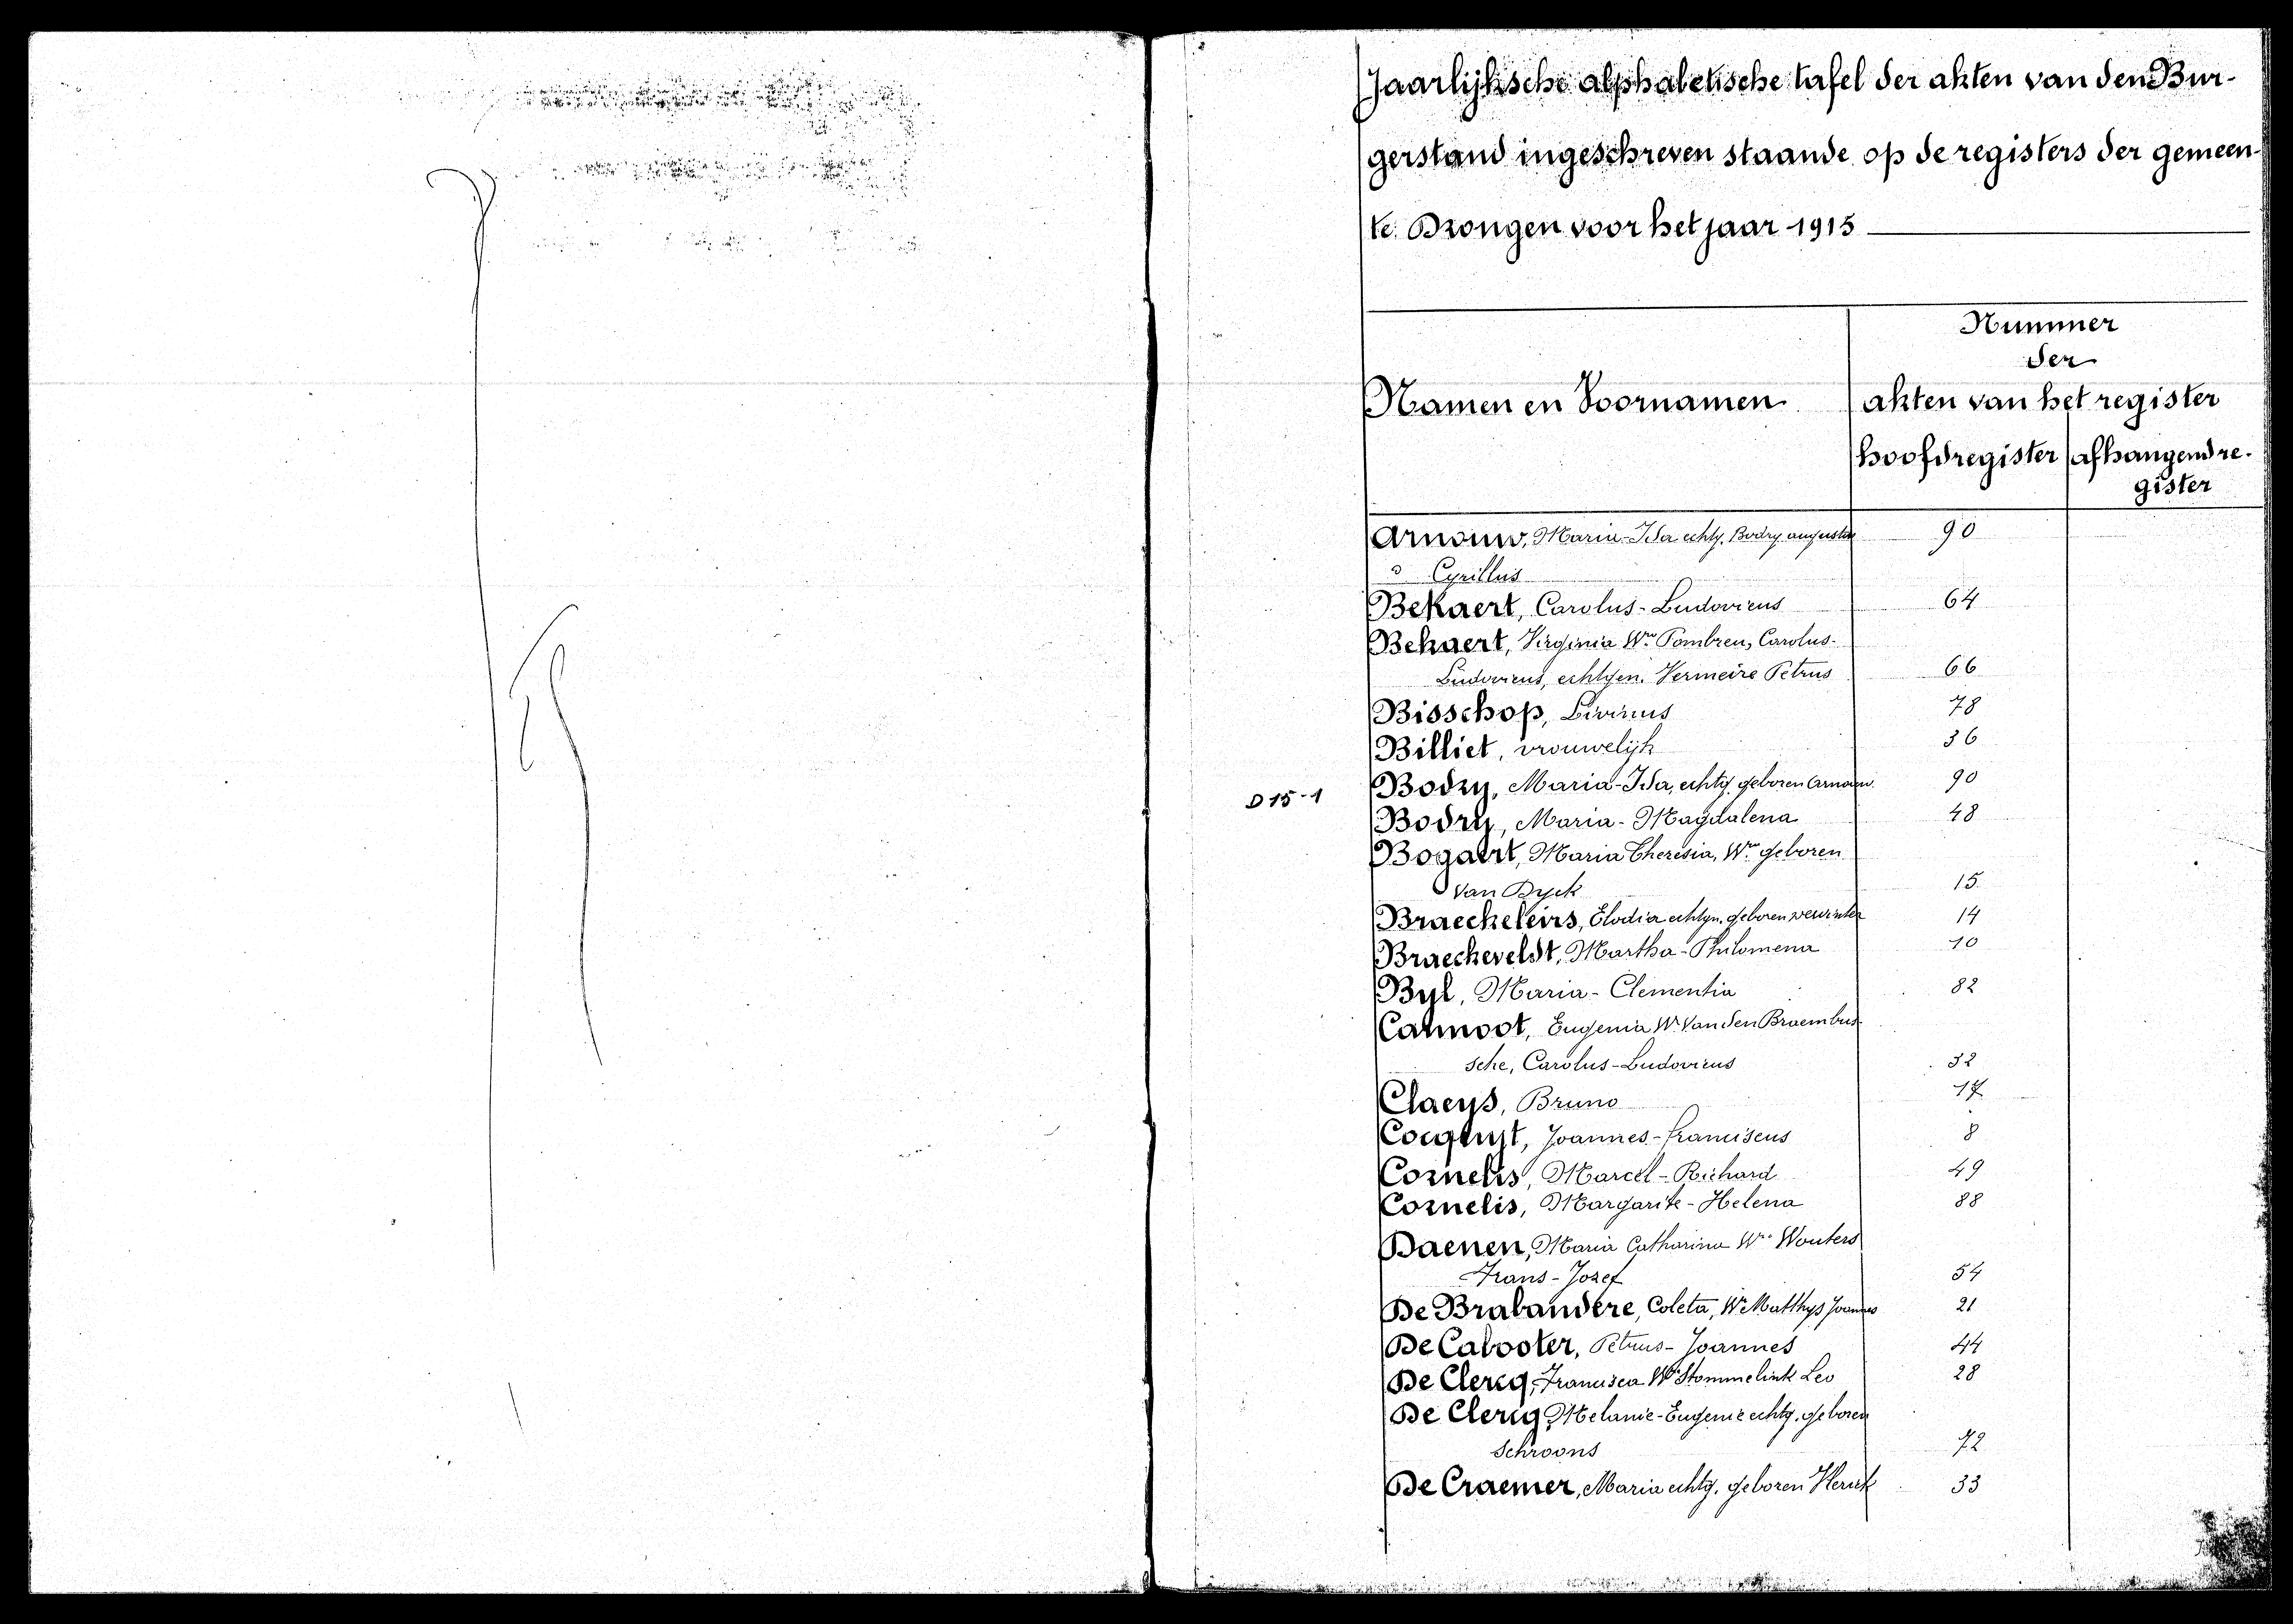 Jaarlijksche alphabetische tafel der akten van den Bur-
gerstand ingeschreven staande op de registers der gemeen-
te Drongen voor het jaar 1915
Nummer
der
Namen en Voornamen akten van het register
hoofdregister afhangend re-
gister
Arnouw, Maria-Ida echtg. Bodry augustus 90
Cyrillus
Bekaert, Carolus-Ludovicus 64
Bekaert, Virginia We Pombreu, Carolus-
Ludovicus, echtgen. Vermeire Petrus 66
Bisschop, Livinus 78
Billiet, vrouwelijk 36
D 15-1 Bodry, Maria-Ida, echtg. geboren Arnouw. 90
Bodry, Maria-Magdalena 48
Bogaert, Maria Theresia, We geboren
Van Dyck 15
Braeckeleirs, Elodia echtgn. geboren 14
Braeckeveldt, Martha-Philomena 10
Byl, Maria-Clementia 82
Cannoot, Eugenia We Van den Braembus-
sche, Carolus-Ludovicus 32
Claeys, Bruno 17
Cocquyt, Joannes-franciscus 8
Cornelis, Marcel-Richard 49
Cornelis, Margarite-Helena 88
Daenen, Maria Catharina We Wouters
Frans-Jozef 54
De Brabandere, Coleta, We Matthys Joannes 21
De Cabooter, Petrus-Joannes 44
De Clercq, Francisca We Stommelink Leo 28
De Clercq, Melanie-Eugenie echtg. geboren
Schroons 72
De Craemer, Maria echtg. geboren 33